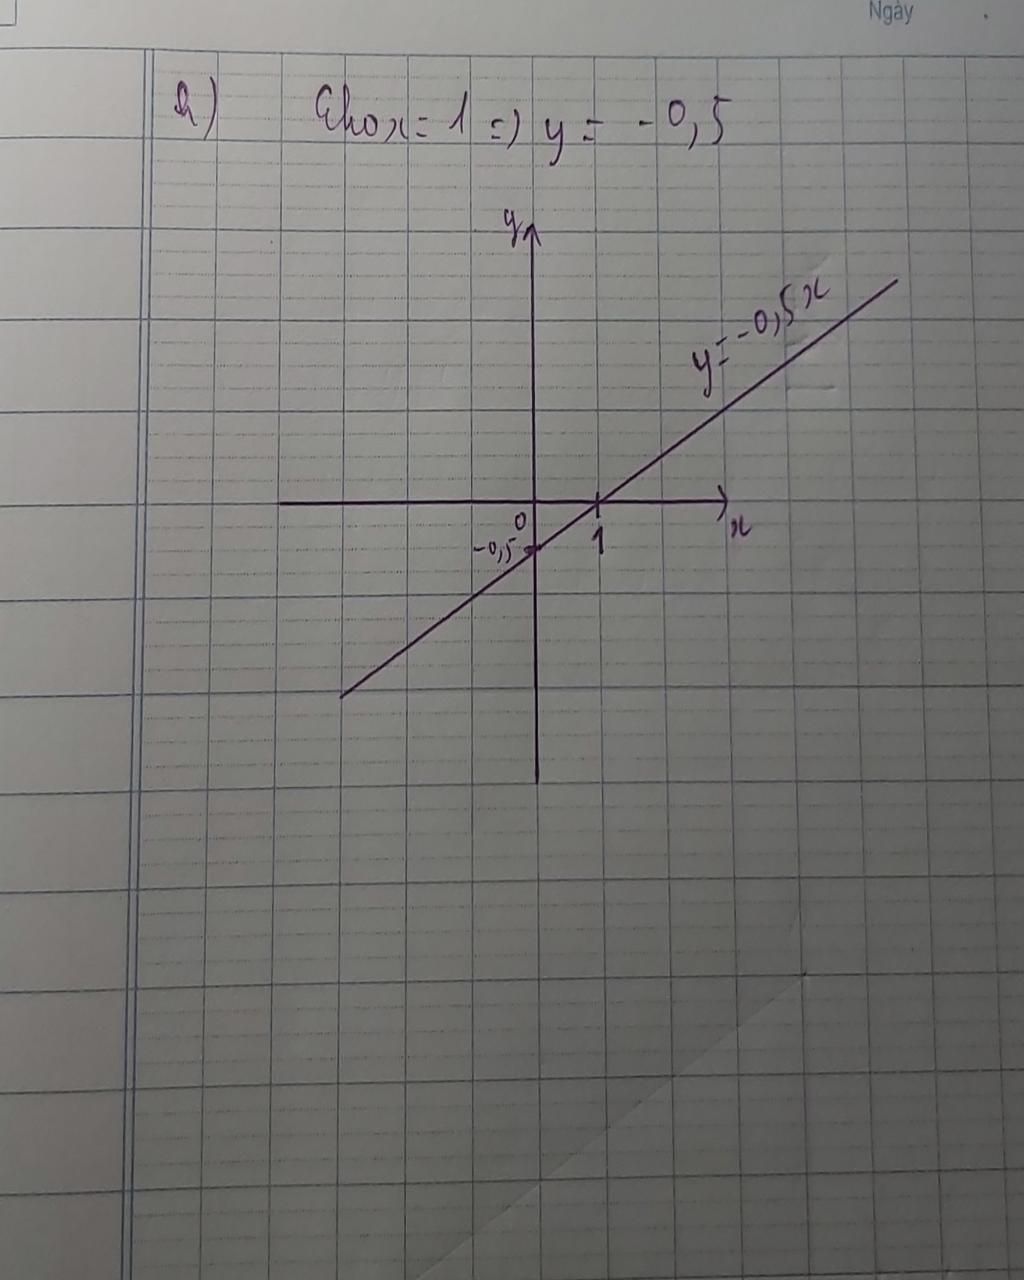 Ngày
a) Cho x = 1 => y = -0,5
y
y = -0,5x
0
-0,5
1
x